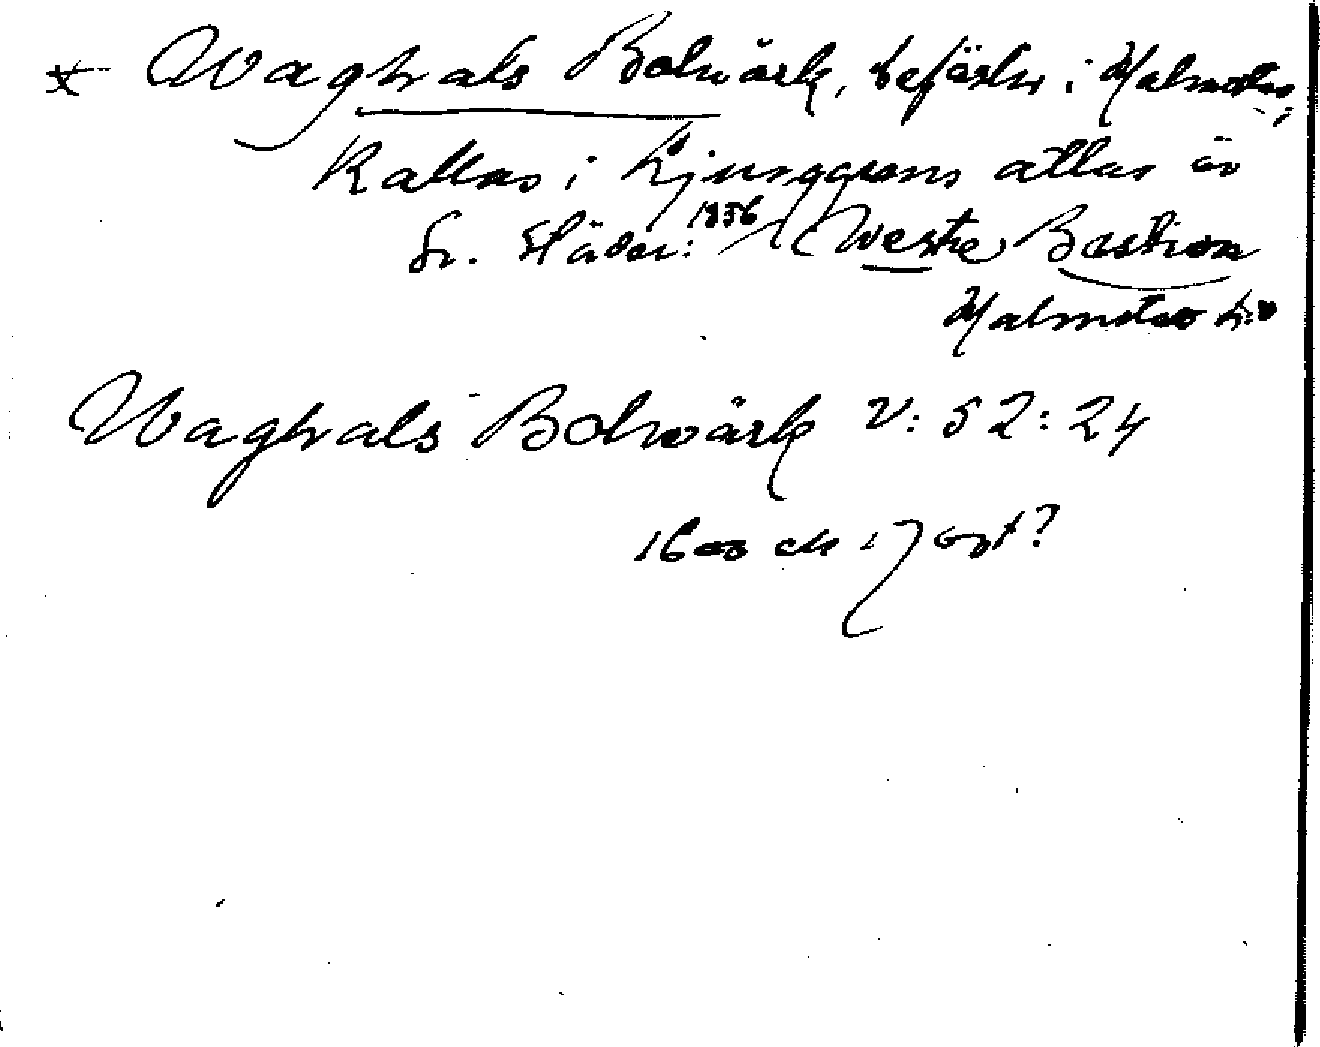 Waghals Bolwärk, befästn i Malmötus,
Kallas i Ljunggrens atlas öv
Sv. städer: 1856 Westre Bastion
Malmötus
Waghals Bolwärk V: 52: 24
1600 och 17